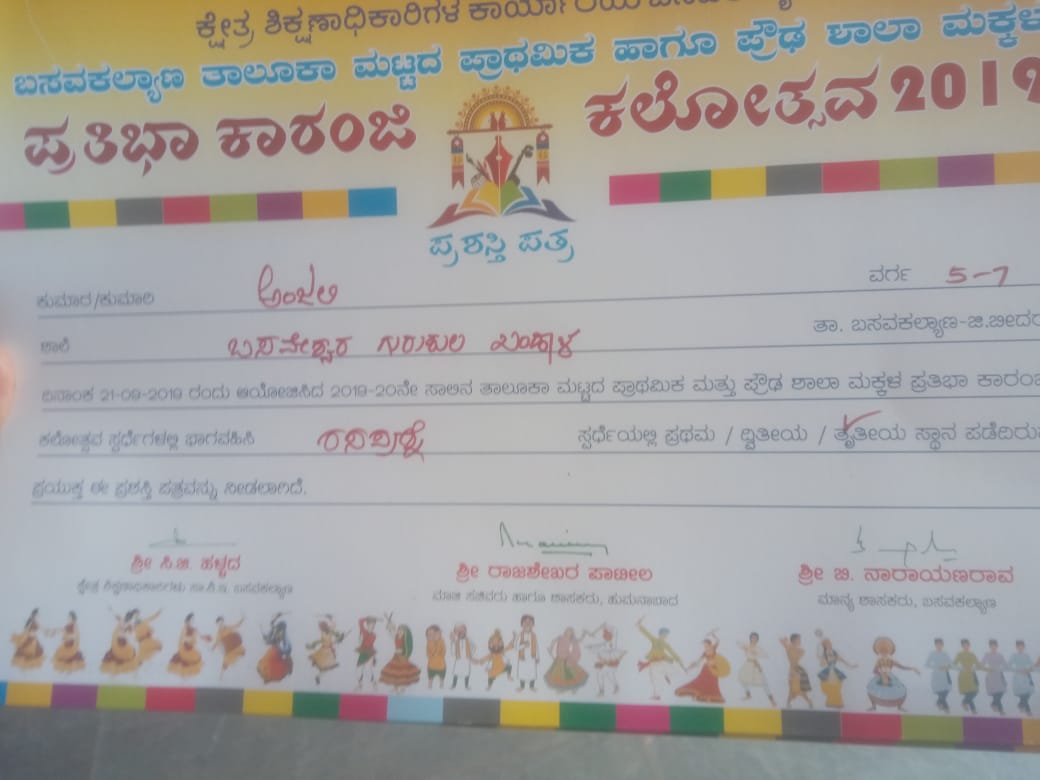 ಕ್ಷೇತ್ರ ಶಿಕ್ಷಣಾಧಿಕಾರಿಗಳ ಕಾರ್ಯಾಲಯ
ಬಸವಕಲ್ಯಾಣ ತಾಲೂಕಾ ಮಟ್ಟದ ಪ್ರಾಥಮಿಕ ಹಾಗೂ ಪ್ರೌಢ ಶಾಲಾ ಮಕ್ಕಳ
ಪ್ರತಿಭಾ ಕಾರಂಜಿ ಕಲೋತ್ಸವ 2019
ಪ್ರಶಸ್ತಿ ಪತ್ರ
ಕುಮಾರ/ಕುಮಾರಿ ಅಂಜಲಿ ವರ್ಗ 5-7
ಶಾಲೆ ಬಸವೇಶ್ವರ ಗುರುಕುಲ ತಾ. ಬಸವಕಲ್ಯಾಣ-ಜಿ.ಬೀದರ
ದಿನಾಂಕ 21-09-2019 ರಂದು ಆಯೋಜಿಸಿದ 2019-20ನೇ ಸಾಲಿನ ತಾಲೂಕಾ ಮಟ್ಟದ ಪ್ರಾಥಮಿಕ ಮತ್ತು ಪ್ರೌಢ ಶಾಲಾ ಮಕ್ಕಳ ಪ್ರತಿಭಾ ಕಾರಂಜಿ
ಕಲೋತ್ಸವ ಸ್ಪರ್ಧೆಗಳಲ್ಲಿ ಭಾಗವಹಿಸಿ ರಸಪ್ರಶ್ನೆ ಸ್ಪರ್ಧೆಯಲ್ಲಿ ಪ್ರಥಮ / ದ್ವಿತೀಯ / ತೃತೀಯ ಸ್ಥಾನ ಪಡೆದಿರುವ
ಪ್ರಯುಕ್ತ ಈ ಪ್ರಶಸ್ತಿ ಪತ್ರವನ್ನು ನೀಡಲಾಗಿದೆ.
ಶ್ರೀ ಸಿ.ಜಿ. ಹಳ್ಳದ
ಕ್ಷೇತ್ರ ಶಿಕ್ಷಣಾಧಿಕಾರಿಗಳು ಸಾ.ಶಿ.ಇ. ಬಸವಕಲ್ಯಾಣ
ಶ್ರೀ ರಾಜಶೇಖರ ಪಾಟೀಲ
ಮಾಜಿ ಸಚಿವರು ಹಾಗೂ ಶಾಸಕರು, ಹುಮನಾಬಾದ
ಶ್ರೀ ಬಿ. ನಾರಾಯಣರಾವ
ಮಾನ್ಯ ಶಾಸಕರು, ಬಸವಕಲ್ಯಾಣ